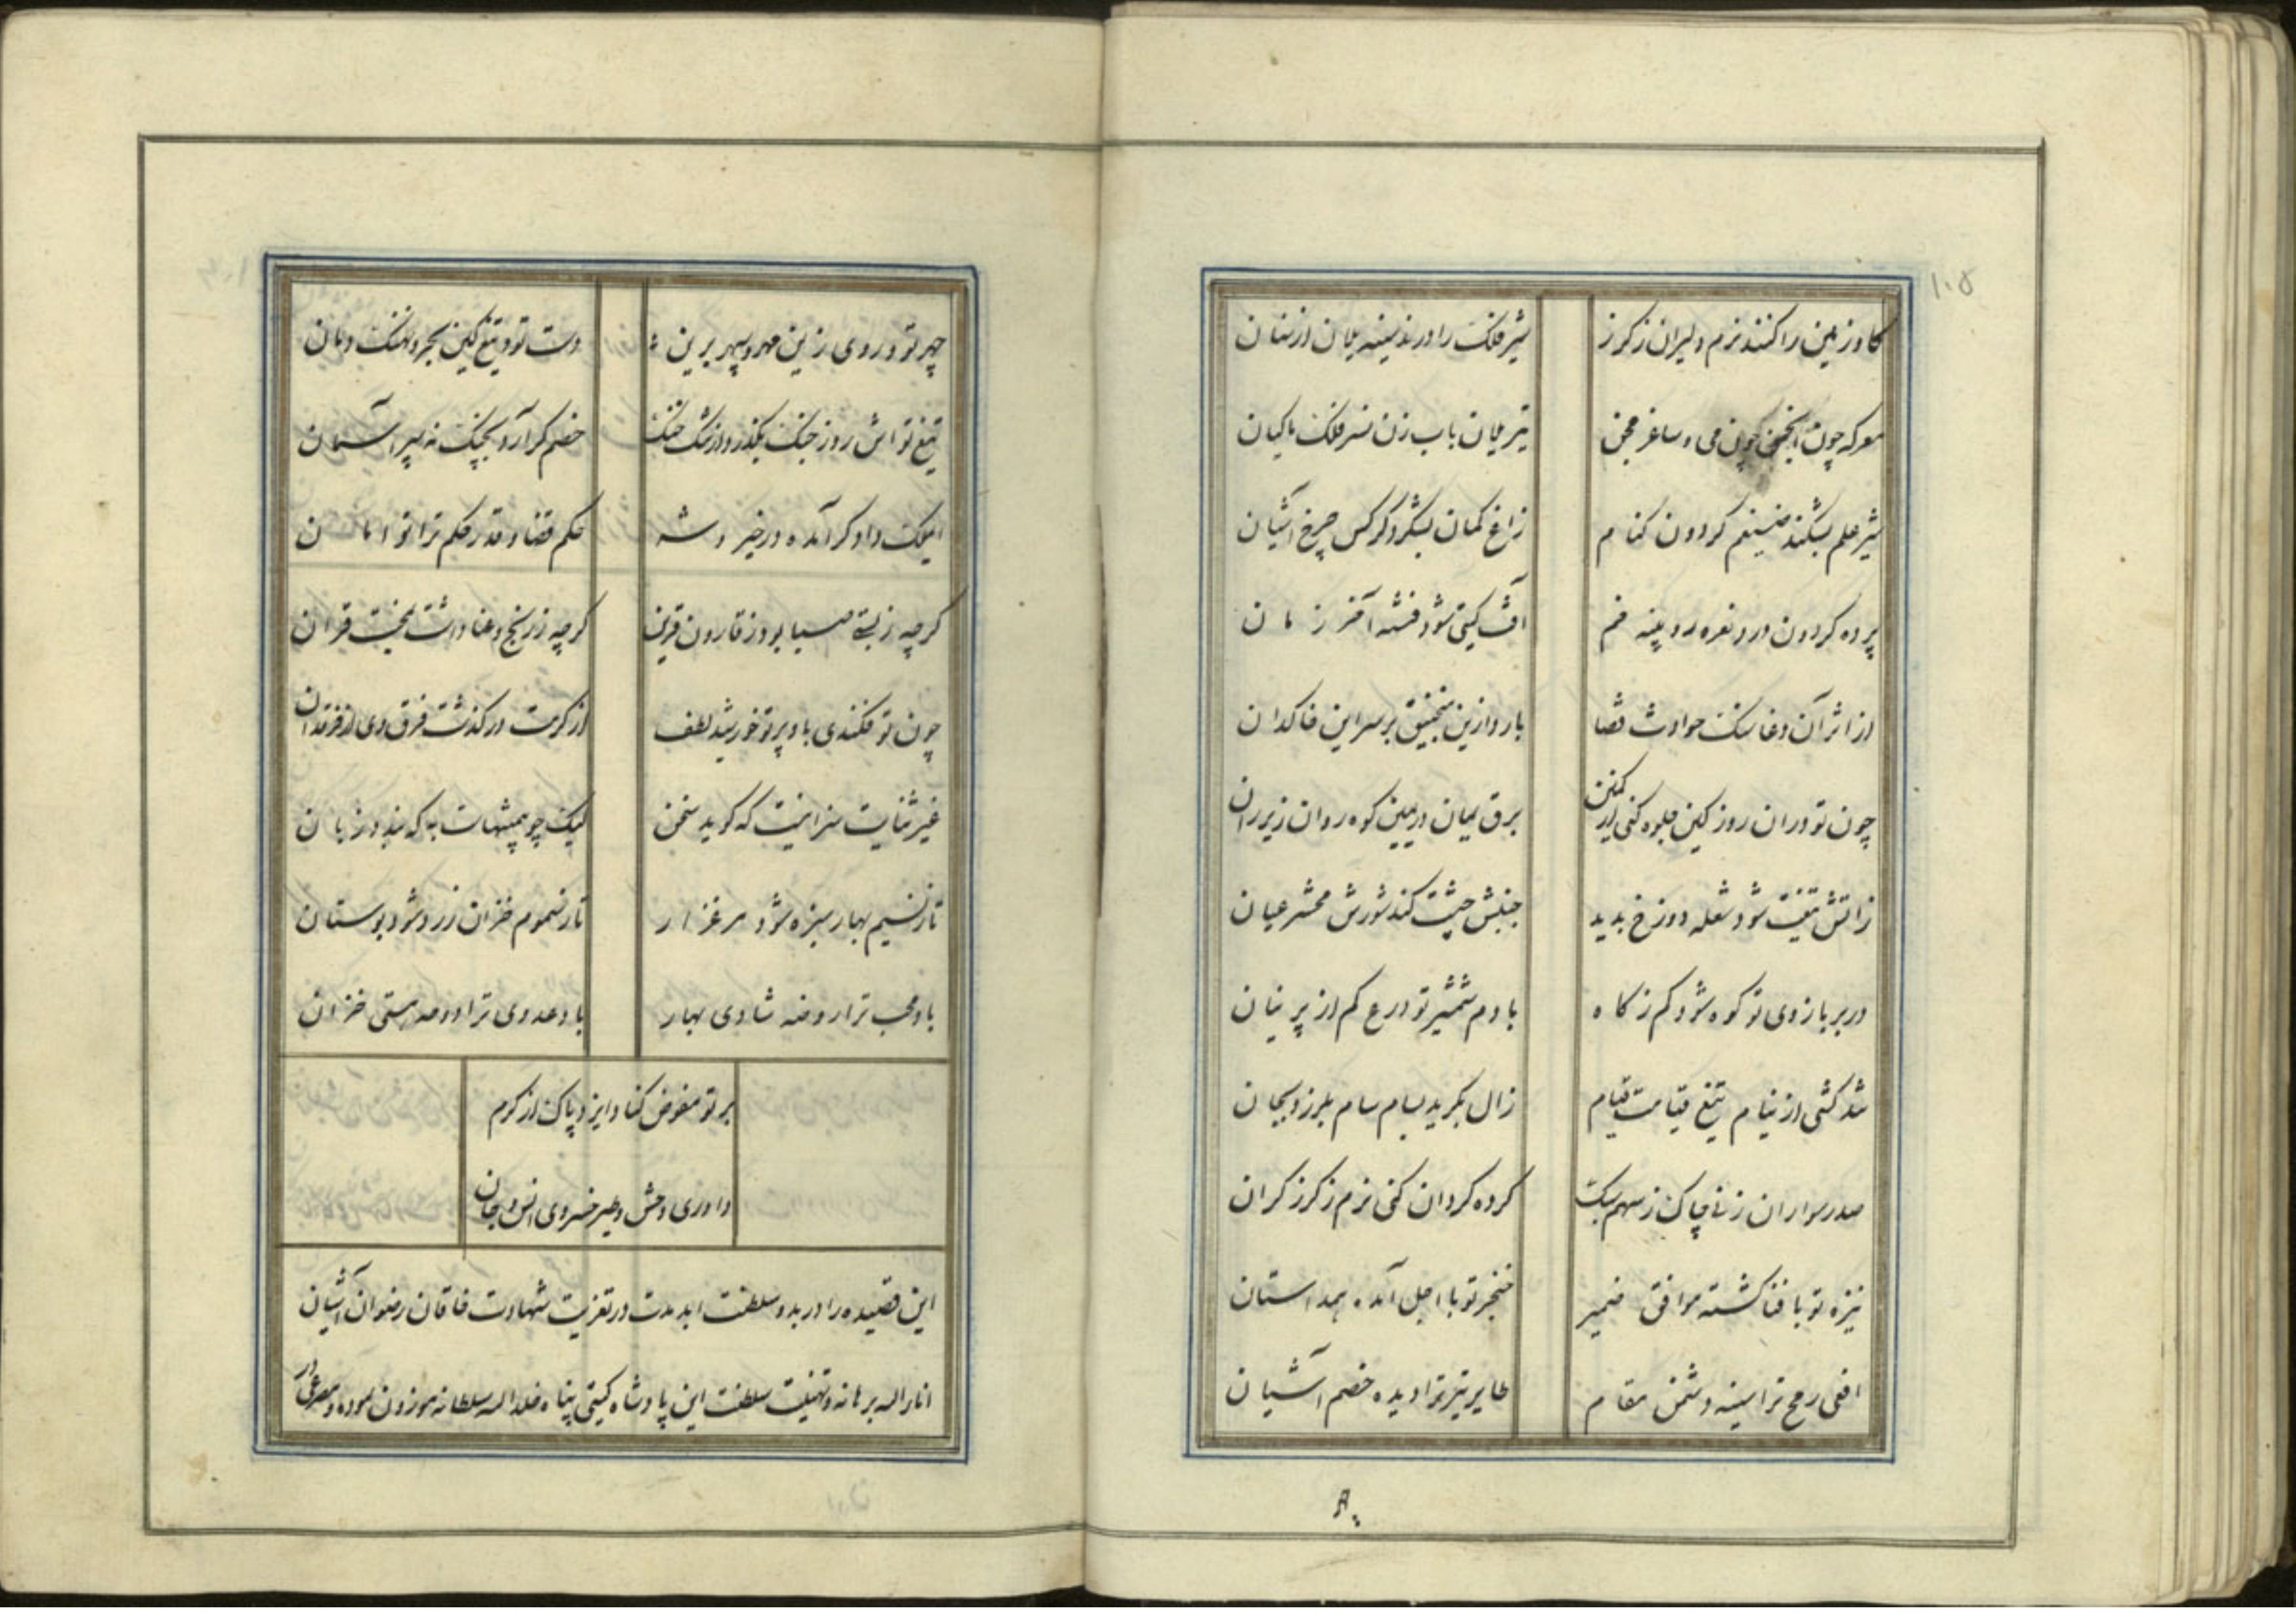 ۱۰۵
کاو زمین را کنند نرم دلیران ز کرز
شیر فلک را درند سینه یلان از سنان
معرکه چون انجمن خون می و ساغر مجن
تیر یلان باب زن نسر فلک ماکیان
شیر علم بشکند ضیغم کردون کنام
زاغ کمان بشکرد کرکس چرخ آشیان
پرده کردون درد نعره رویینه خم
آفت کیتی شود فتنه آخر زمان
از اثر آن وغا سنک حوادث قضا
بارد ازین منجنیق بر سر این خاکدان
چون تو دران روز کین جلوه کنی از کمین
برق یمان در یمین کوه روان زیر ران
زاتش تیغت شود شعله دوزخ پدید
جنبش جیشت کند شورش محشر عیان
در بر بازوی تو کوه شود کم ز کاه
با دم شمشیر تو درع کم از پرنیان
شد کشی از نیام تیغ قیامت قیام
زال بکرید بسام سام بلرزد بجان
صدر سواران زنی چاک ز سهم سبک
کرده کردان کنی نرم ز کرز کران
نیزه تو با فنا کشته موافق ضمیر
خنجر تو با اجل آمده همداستان
افعی رمح ترا سینه دشمن مقام
طایر تیر ترا دیده خصم آشیان
چهر تو و روی زین مهر و سپهر برین
دست تو و تیغ کین بحر و نهنک دمان
تیغ تو اش روز جنک بکذرد از تنک خنک
خصم کر آرد بچنک نه سپر آسمان
ایکت داد کر آمده در خیر و شر
حکم قضا و قدر حکم ترا توامان
کرچه ز پستی مسیا بود ز قارون قرین
کرچه ز رنج و عنا داشت بمحنت قران
چون تو فکندی باو پرتو خورشید لطف
از کرمت در کذشت فرق وی از فرقدان
غیر ثنایت سزا نیست که کوید سخن
لیک چو بیمنتهاست به که ببندد زبان
تا ز نسیم بهار سبزه شود مرغزار
تا ز سموم خزان زرد شود بوستان
باد محب ترا روضه شادی بهار
باد عدوی ترا دوحه هستی خزان
بر تو مفوض کناد ایزد پاک از کرم
داوری وحش و طیر خسروی انس و جان
این قصیده را در بدو سلطنت ابد مدت در تعزیت شهادت خاقان رضوان آشیان
انار الله برهانه و تهنیت سلطنت این پادشاه کیتی پناه خلد الله سلطانه موزون نموده و مصرعی در